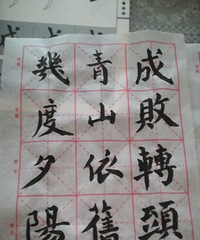 成敗轉頭
青山依舊
幾度夕陽